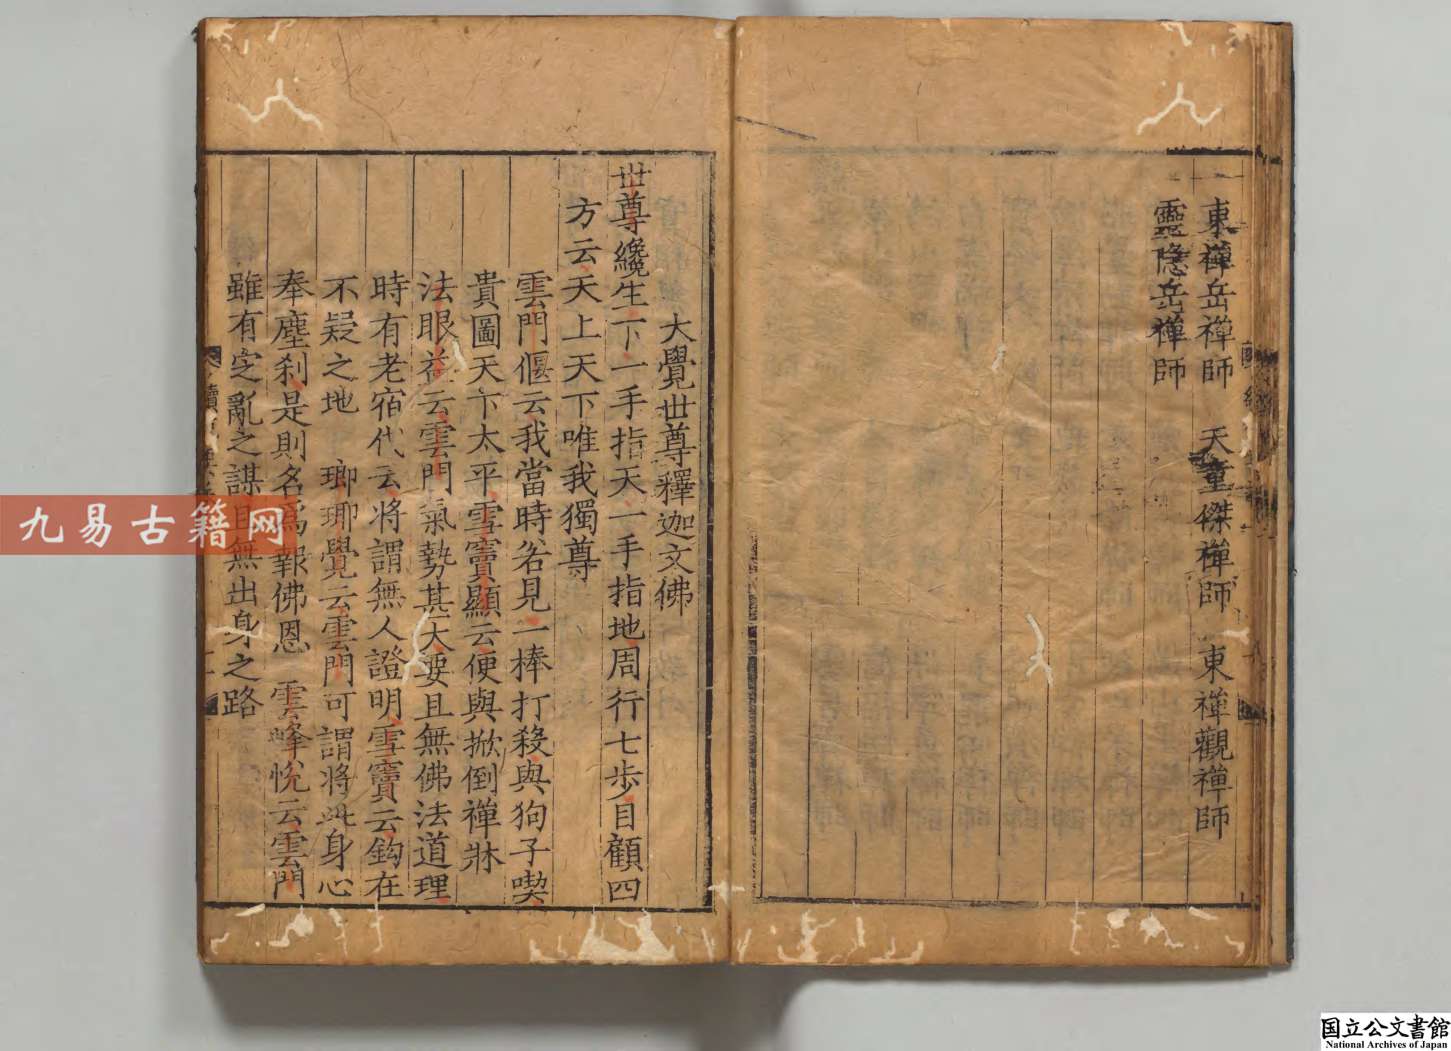 東禪岳禪師　天童傑禪師　東禪觀禪師
靈隱岳禪師
大覺世尊釋迦文佛
世尊纔生下一手指天一手指地周行七步目顧四
方云天上天下唯我獨尊
雲門偃云我當時若見一棒打殺與狗子喫
貴圖天下太平雪竇顯云便與掀倒禪牀
法眼益云雲門氣勢甚大要且無佛法道理
時有老宿代云將謂無人證明雪竇云鈎在
不疑之地　瑯琊覺云雲門可謂將此身心
奉塵刹是則名爲報佛恩　雲峰悅云雲門
雖有定亂之謀且無出身之路
九易古籍网
国立公文書館
National Archives of Japan